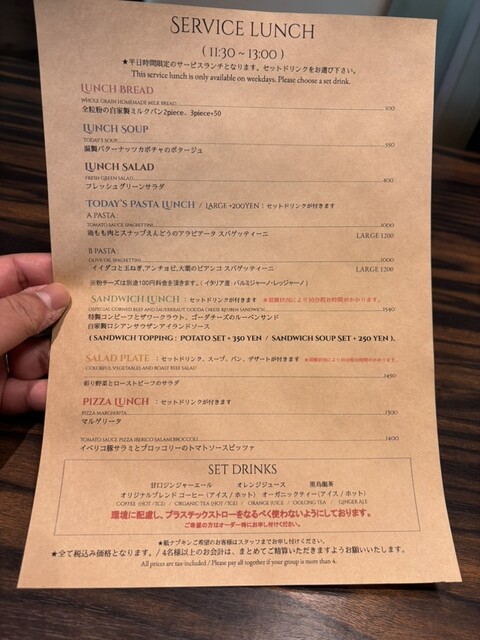 SERVICE LUNCH
( 11:30 ~ 13:00 )
★平日時間限定のサービスランチとなります。セットドリンクをお選び下さい。
This service lunch is only available on weekdays. Please choose a set drink.
LUNCH BREAD
WHOLE GRAIN HOMEMADE MILK BREAD
全粒粉の自家製ミルクパン2piece、3piece+50
LUNCH SOUP
TODAY'S SOUP 350
温製バターナッツカボチャのポタージュ
LUNCH SALAD
FRESH GREEN SALAD 400
フレッシュグリーンサラダ
TODAY'S PASTA LUNCH / LARGE +200YEN : セットドリンクが付きます
A PASTA :
TOMATO SAUCE SPAGHETTINI 1000
鶏もも肉とスナップえんどうのアラビアータ スパゲッティーニ LARGE 1200
B PASTA :
OLIVE OIL SPAGHETTINI 1000
イイダコと玉ねぎ,アンチョビ,大葉のビアンコ スパゲッティーニ LARGE 1200
※粉チーズは別途100円料金を頂きます。( イタリア産 : パルミジャーノ・レッジャーノ )
SANDWICH LUNCH : セットドリンクが付きます
SPECIAL CORNED BEEF AND SAUERKRAUT, GOUDA CHEESE REUBEN SANDWICH 1540
特製コンビーフとザワークラウト、ゴーダチーズのルーベンサンド
自家製ロシアンサウザンアイランドソース
( SANDWICH TOPPING : POTATO SET + 350 YEN / SANDWICH SOUP SET + 250 YEN ).
SALAD PLATE : セットドリンク、スープ、パン、デザートが付きます
COLORFUL VEGETABLES AND ROAST BEEF SALAD 1450
彩り野菜とローストビーフのサラダ
PIZZA LUNCH : セットドリンクが付きます
PIZZA MARGHERITA 1300
マルゲリータ
TOMATO SAUCE PIZZA IBERICO SALAMI,BROCCOLI 1400
イベリコ豚サラミとブロッコリーのトマトソースピッツァ
SET DRINKS
甘口ジンジャーエール オレンジジュース 黒烏龍茶
オリジナルブレンド コーヒー (アイス / ホット) オーガニックティー(アイス / ホット)
COFFEE (HOT / ICE) / ORGANIC TEA (HOT / ICE) / ORANGE JUICE / OOLONG TEA / GINGER ALE
環境に配慮し、プラスチックストローをなるべく使わないようにしております。
ご希望の方はオーダー時にお申し付けください。
★紙ナプキンご希望のお客様はスタッフまでお申し付けください。
★全て税込み価格となります。/ 4名様以上のお会計は、まとめてご精算いただきますようお願いいたします。
All prices are tax-included / Please pay all together if your group is more than 4.